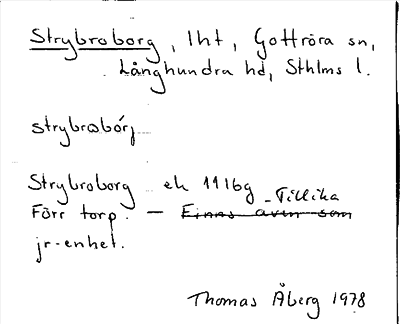 Strybroborg, lht, Gottröra sn,
Långhundra hd, Sthlms l.
strybrobórj
Strybroborg ek 11I6g
Förr torp. – Finns även som Tillika
jr-enhet.
Thomas Åberg 1978